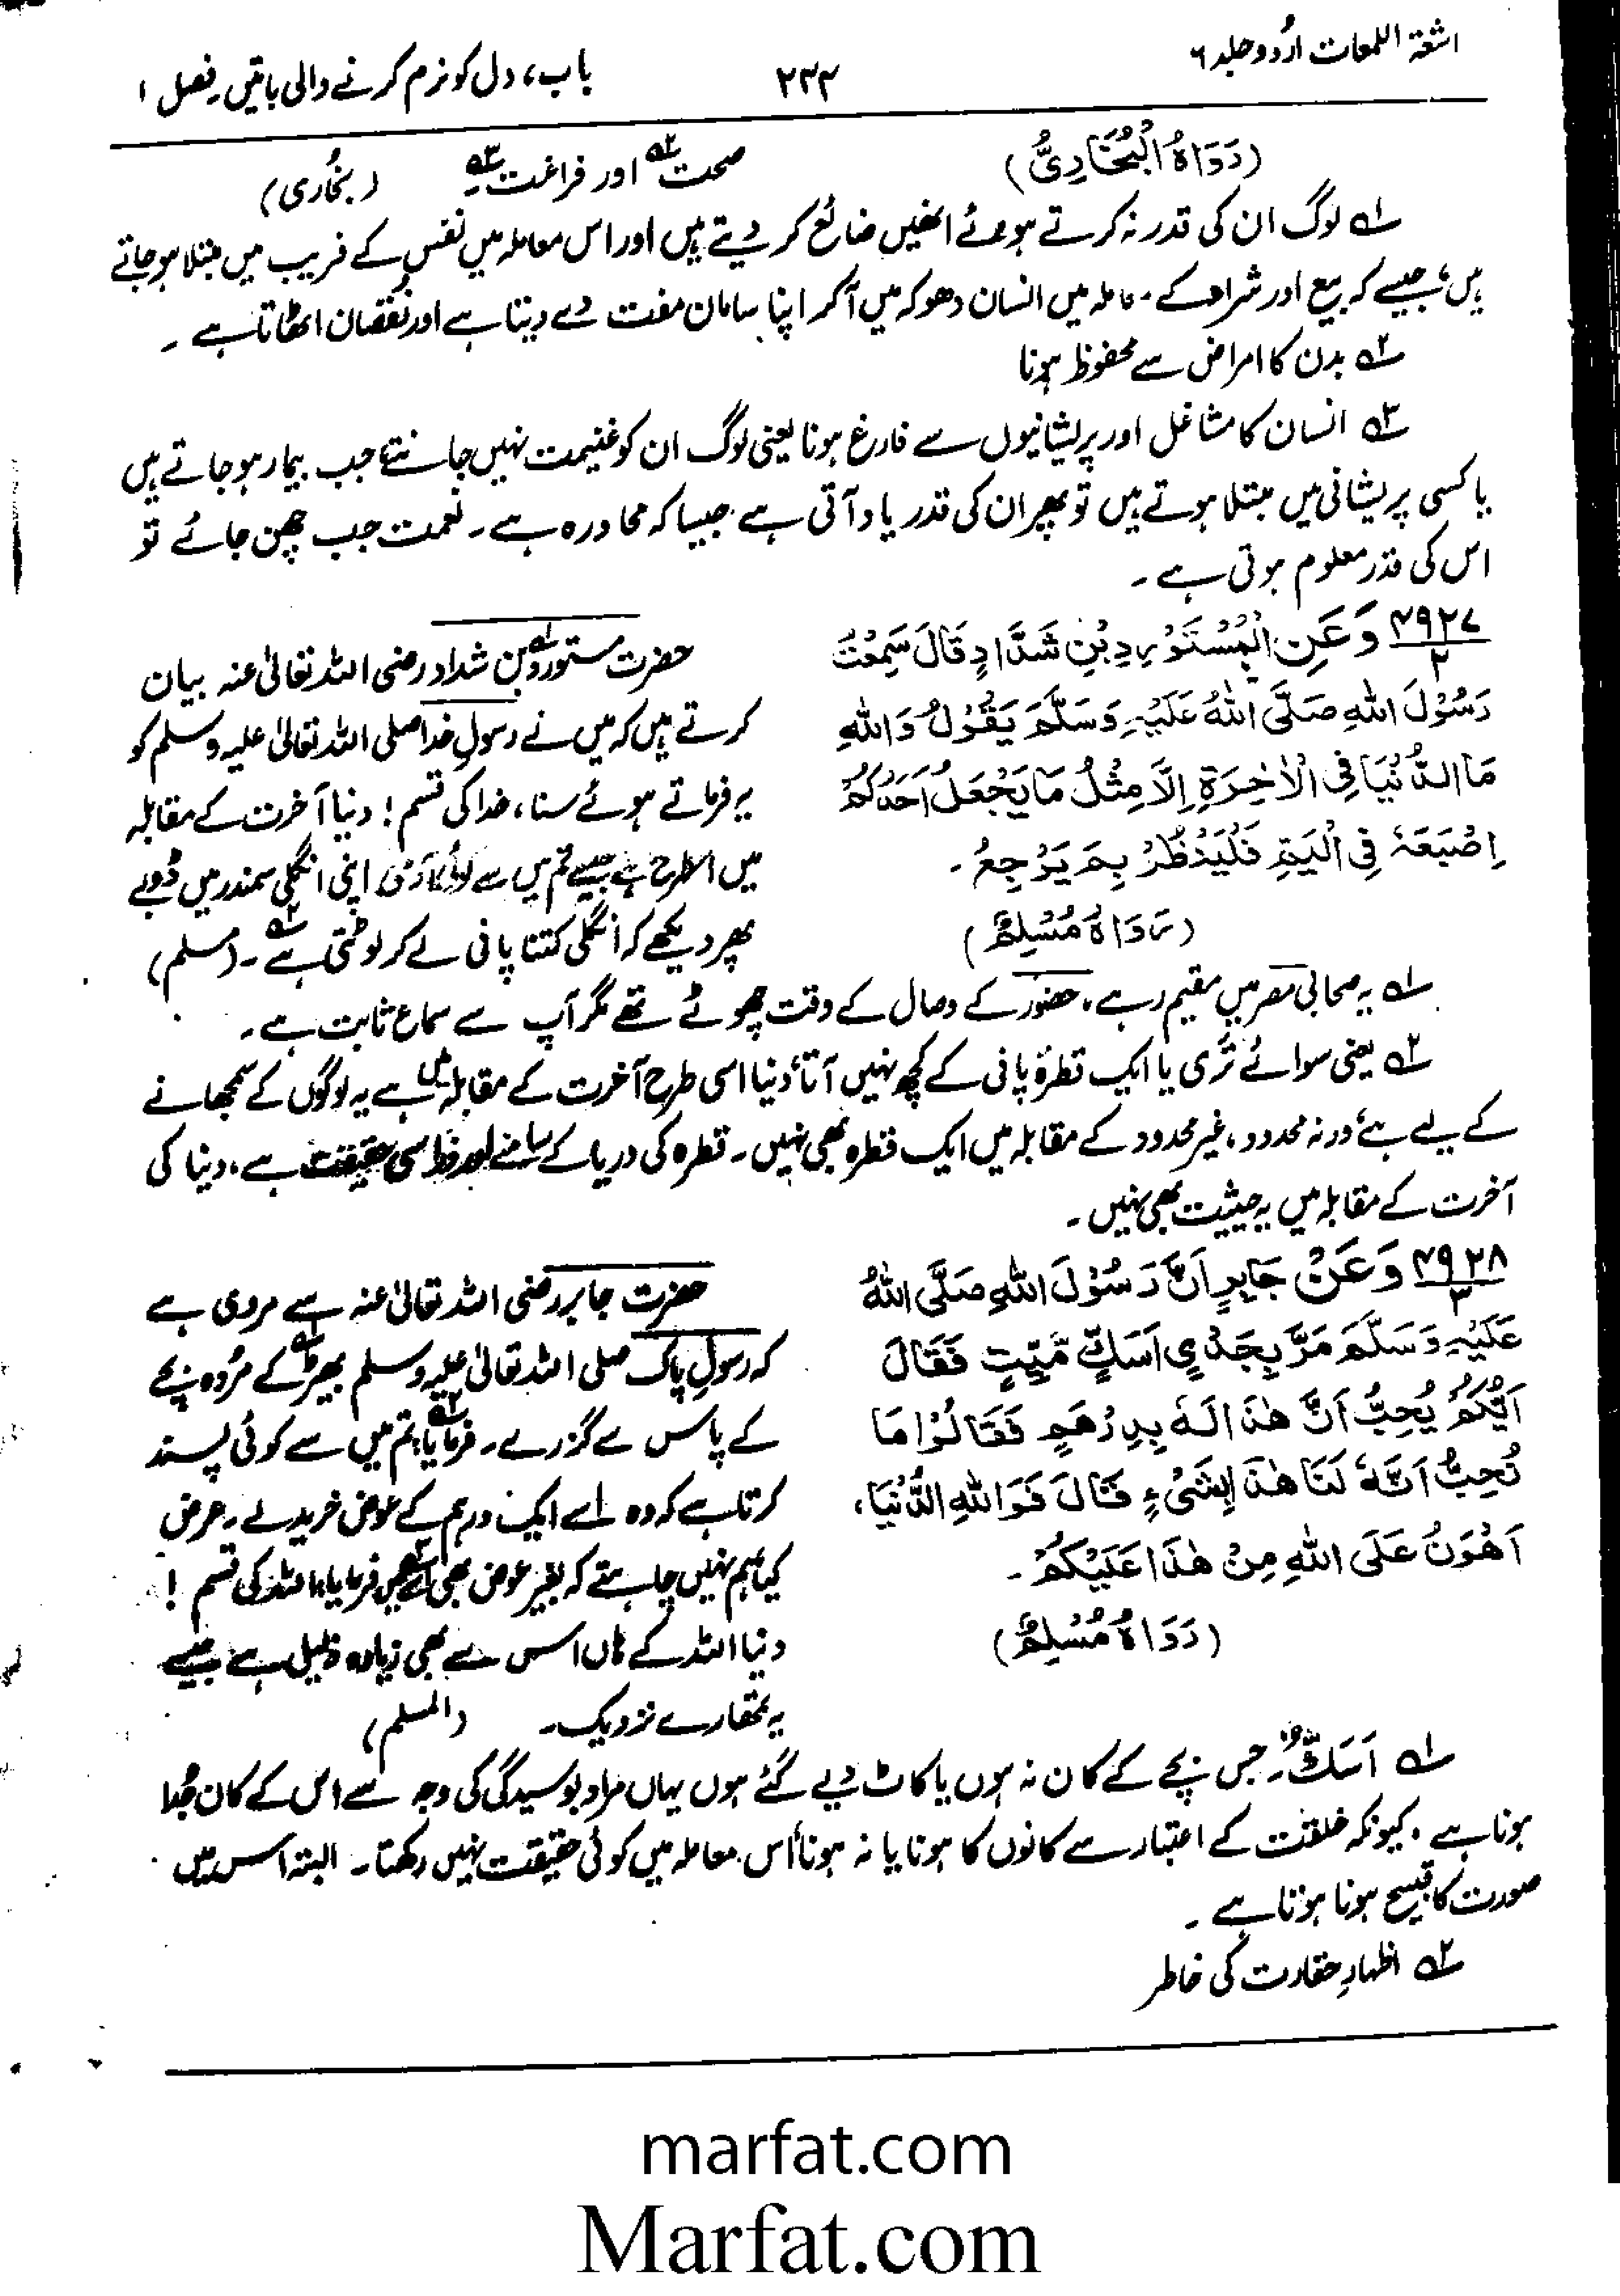 اشعۃ اللمعات اردو جلد ۶
۲۳۴
باب، دل کو نرم کرنے والی باتیں۔ فصل ۱
(رَوَاهُ الْبُخَارِيُّ)
صحت ۲؎ اور فراغت ۳؎ (بخاری)
۱؎ لوگ ان کی قدر نہ کرتے ہوئے انھیں ضائع کر دیتے ہیں اور اس معاملہ میں نفس کے فریب میں مبتلا ہو جاتے
ہیں، جیسے کہ بیع اور شراء کے معاملہ میں انسان دھوکہ میں آکر اپنا سامان مفت دے دیتا ہے اور نقصان اٹھاتا ہے۔
۲؎ بدن کا امراض سے محفوظ ہونا
۳؎ انسان کا مشاغل اور پریشانیوں سے فارغ ہونا یعنی لوگ ان کو غنیمت نہیں جانتے جب بیمار ہو جاتے ہیں
یا کسی پریشانی میں مبتلا ہوتے ہیں تو پھر ان کی قدر یاد آتی ہے جیسا کہ محاورہ ہے۔ نعمت جب چھن جائے تو
اس کی قدر معلوم ہوتی ہے۔
۴۹۲۷
۲
وَعَنِ الْمُسْتَوْرِدِ بْنِ شَدَّادٍ قَالَ سَمِعْتُ
رَسُوْلَ اللهِ صَلَّى اللهُ عَلَيْهِ وَسَلَّمَ يَقُوْلُ وَاللهِ
مَا الدُّنْيَا فِي الْاٰخِرَةِ اِلَّا مِثْلُ مَا يَجْعَلُ اَحَدُكُمْ
اِصْبَعَهٗ فِي الْيَمِّ فَلْيَنْظُرْ بِمَ يَرْجِعُ۔
(رَوَاهُ مُسْلِمٌ)
حضرت مستورد ۱؎ بن شداد رضی اللہ تعالیٰ عنہ بیان
کرتے ہیں کہ میں نے رسول خدا صلی اللہ تعالیٰ علیہ وسلم کو
یہ فرماتے ہوئے سنا، خدا کی قسم! دنیا آخرت کے مقابلہ
میں اس طرح ہے جیسے تم میں سے کوئی آدمی اپنی انگلی سمندر میں ڈبوئے
پھر دیکھے کہ انگلی کتنا پانی لے کر لوٹتی ہے ۲؎۔ (مسلم)
۱؎ یہ صحابی مصر میں مقیم رہے، حضور کے وصال کے وقت چھوٹے تھے مگر آپ سے سماع ثابت ہے۔
۲؎ یعنی سوائے تری یا ایک قطرۂ پانی کے کچھ نہیں آتا دنیا اسی طرح آخرت کے مقابلہ میں ہے یہ لوگوں کے سمجھانے
کے لیے ہے ورنہ محدود، غیر محدود کے مقابلہ میں ایک قطرہ بھی نہیں۔ قطرہ کی دریا کے سامنے سی حقیقت ہے، دنیا کی
آخرت کے مقابلہ میں یہ حیثیت بھی نہیں۔
۴۹۲۸
۳
وَعَنْ جَابِرٍ اَنَّ رَسُوْلَ اللهِ صَلَّى اللهُ
عَلَيْهِ وَسَلَّمَ مَرَّ بِجَدْيٍ اَسَكَّ مَّيِّتٍ فَقَالَ
اَيُّكُمْ يُحِبُّ اَنَّ هٰذَا لَهٗ بِدِرْهَمٍ فَقَالُوْا مَا
نُحِبُّ اَنَّهٗ لَنَا هٰذَا بِشَيْءٍ قَالَ فَوَاللهِ الدُّنْيَا،
اَهْوَنُ عَلَى اللهِ مِنْ هٰذَا عَلَيْكُمْ۔
(رَوَاهُ مُسْلِمٌ)
حضرت جابر رضی اللہ تعالیٰ عنہ سے مروی ہے
کہ رسول پاک صلی اللہ تعالیٰ علیہ وسلم بھیڑ ۱؎ کے مُردہ بچے
کے پاس سے گزرے۔ فرمایا ۲؎ تم میں سے کوئی پسند
کرتا ہے کہ وہ اسے ایک درہم کے عوض خرید لے۔ عرض
کیا ہم نہیں چاہتے کہ بغیر عوض بھی فرمایا اللہ کی قسم!
دنیا اللہ کے ہاں اس سے بھی زیادہ ذلیل ہے جیسے
یہ تمھارے نزدیک۔ (المسلم)
۱؎ اَسَكٌّ۔ جس بچے کے کان نہ ہوں یا کاٹ دیے گئے ہوں یہاں مراد بوسیدگی کی وجہ سے اس کے کان جُدا
ہونا ہے، کیونکہ خلقت کے اعتبار سے کانوں کا ہونا یا نہ ہونا اس معاملہ میں کوئی حقیقت نہیں رکھتا۔ البتہ اس میں
صورت کا قبیح ہونا ہوتا ہے۔
۲؎ اظہارِ حقارت کی خاطر
marfat.com
Marfat.com